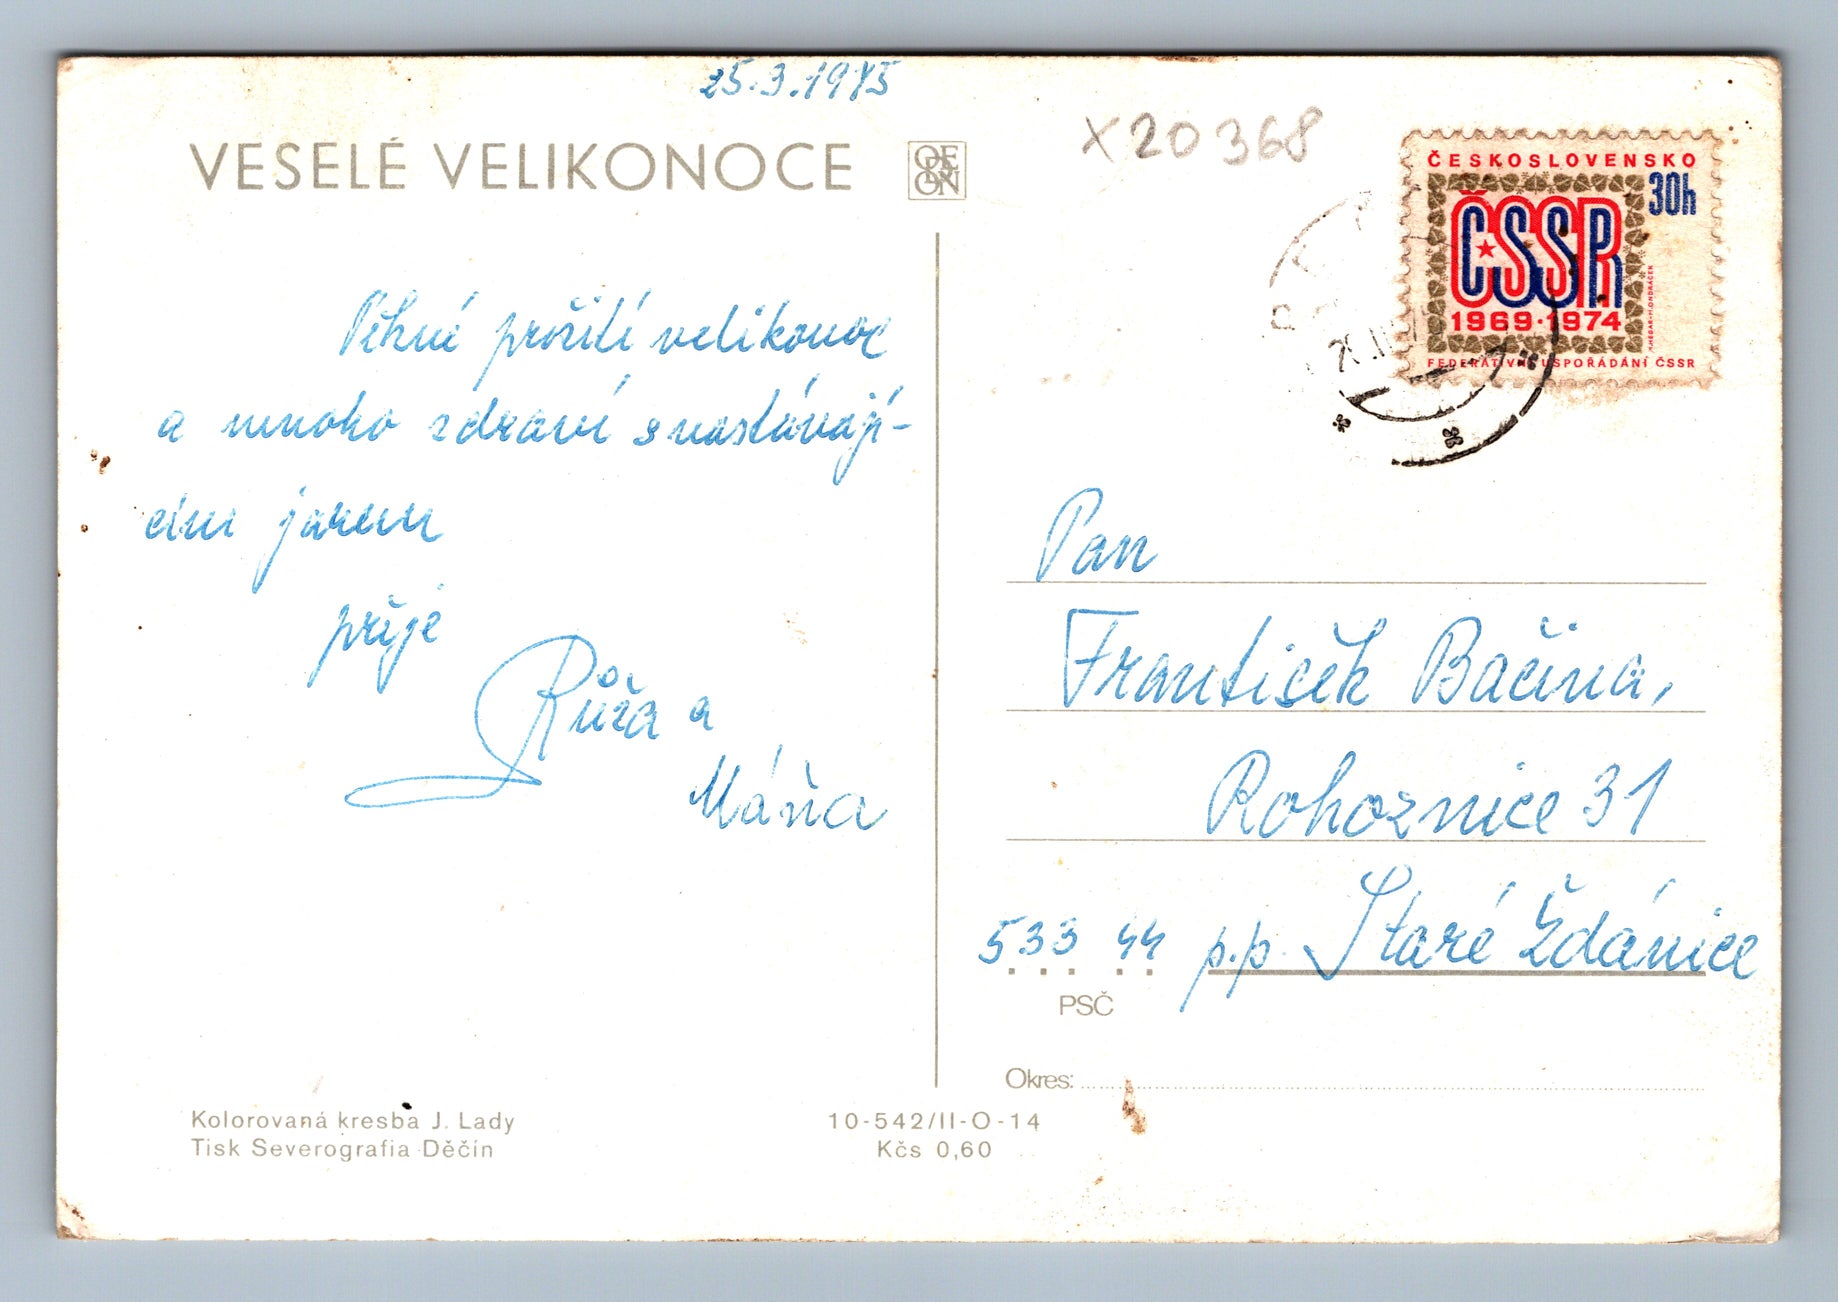 25.3.1975
VESELÉ VELIKONOCE
ODEON
X20368
ČESKOSLOVENSKO
30h
ČSSR
1969·1974
FEDERATIVNÍ USPOŘÁDÁNÍ ČSSR
Pěkné prožití velikonoc
a mnoho zdraví s nastávají-
cím jarem
přeje
Růža a
Máňa
Pan
František Bačina,
Rohoznice 31
533 44 p.p. Staré Ždánice
PSČ
Okres:
Kolorovaná kresba J. Lady
Tisk Severografia Děčín
10-542/II-O-14
Kčs 0,60